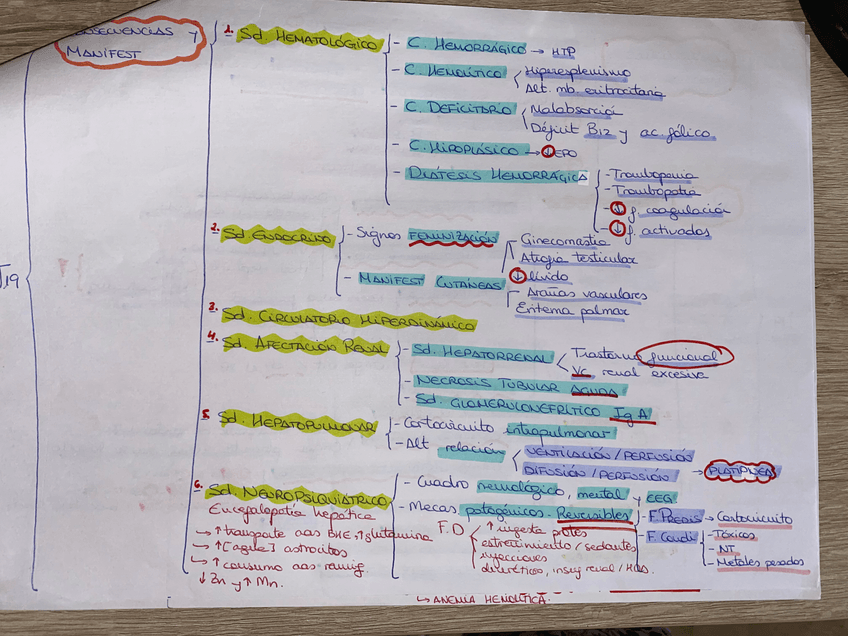 CONSECUENCIAS y
MANIFEST
T19
1. Sd. HEMATOLÓGICO
- C. HEMORRÁGICO → HTP
- C. HEMOLÍTICO
Hiperesplenismo
Alt. mb. eritrocitaria
- C. DEFICITARIO
Malabsorció
Déficit B12 y ac. fólico.
- C. HIPOPLÁSICO → ↓ EPO
- DIÁTESIS HEMORRÁGICA
- Trombopenia
- Trombopatía
- ↓ f. coagulación
- ↓ f. activados
2. Sd. ENDOCRINO
- Signos FEMINIZACIÓN
Ginecomastia
Atrofia testicular
↓ líbido
- MANIFEST CUTÁNEAS
Arañas vasculares
Eritema palmar
3. Sd. CIRCULATORIO HIPERDINÁMICO
4. Sd. AFECTACIÓN RENAL
- Sd. HEPATORRENAL
Trastorno funcional
Vc renal excesiva
- NECROSIS TUBULAR AGUDA
- Sd. GLOMERULONEFRÍTICO IgA
5. Sd. HEPATOPULMONAR
- Cortocircuito intrapulmonar
- Alt relación
VENTILACIÓN/PERFUSIÓN
DIFUSIÓN/PERFUSIÓN → PLATIPNEA
6. Sd. NEUROPSIQUIÁTRICO
- Cuadro neurológico, mental y EEG
- Mecas patogénicos. Reversibles
- F. Predis → Cortocircuito
- F. Condi
- Tóxicos
- NT
- Metales pesados
Encefalopatía hepática
→ ↑ transporte aas BHE, ↑ glutamina
→ ↑ [aguae] astrocitos
→ ↑ consumo aas ramif.
↓ Zn y ↑ Mn.
F.D
↑ ingesta
estreñimiento / sedantes
infecciones
diuréticos, insuf renal / HDA.
→ ANEMIA HEMOLÍTICA.